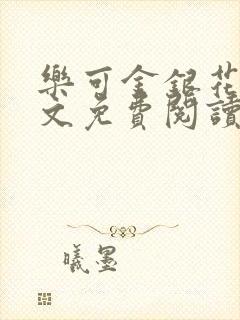 樂可金銀花
文免費閱讀
曦墨